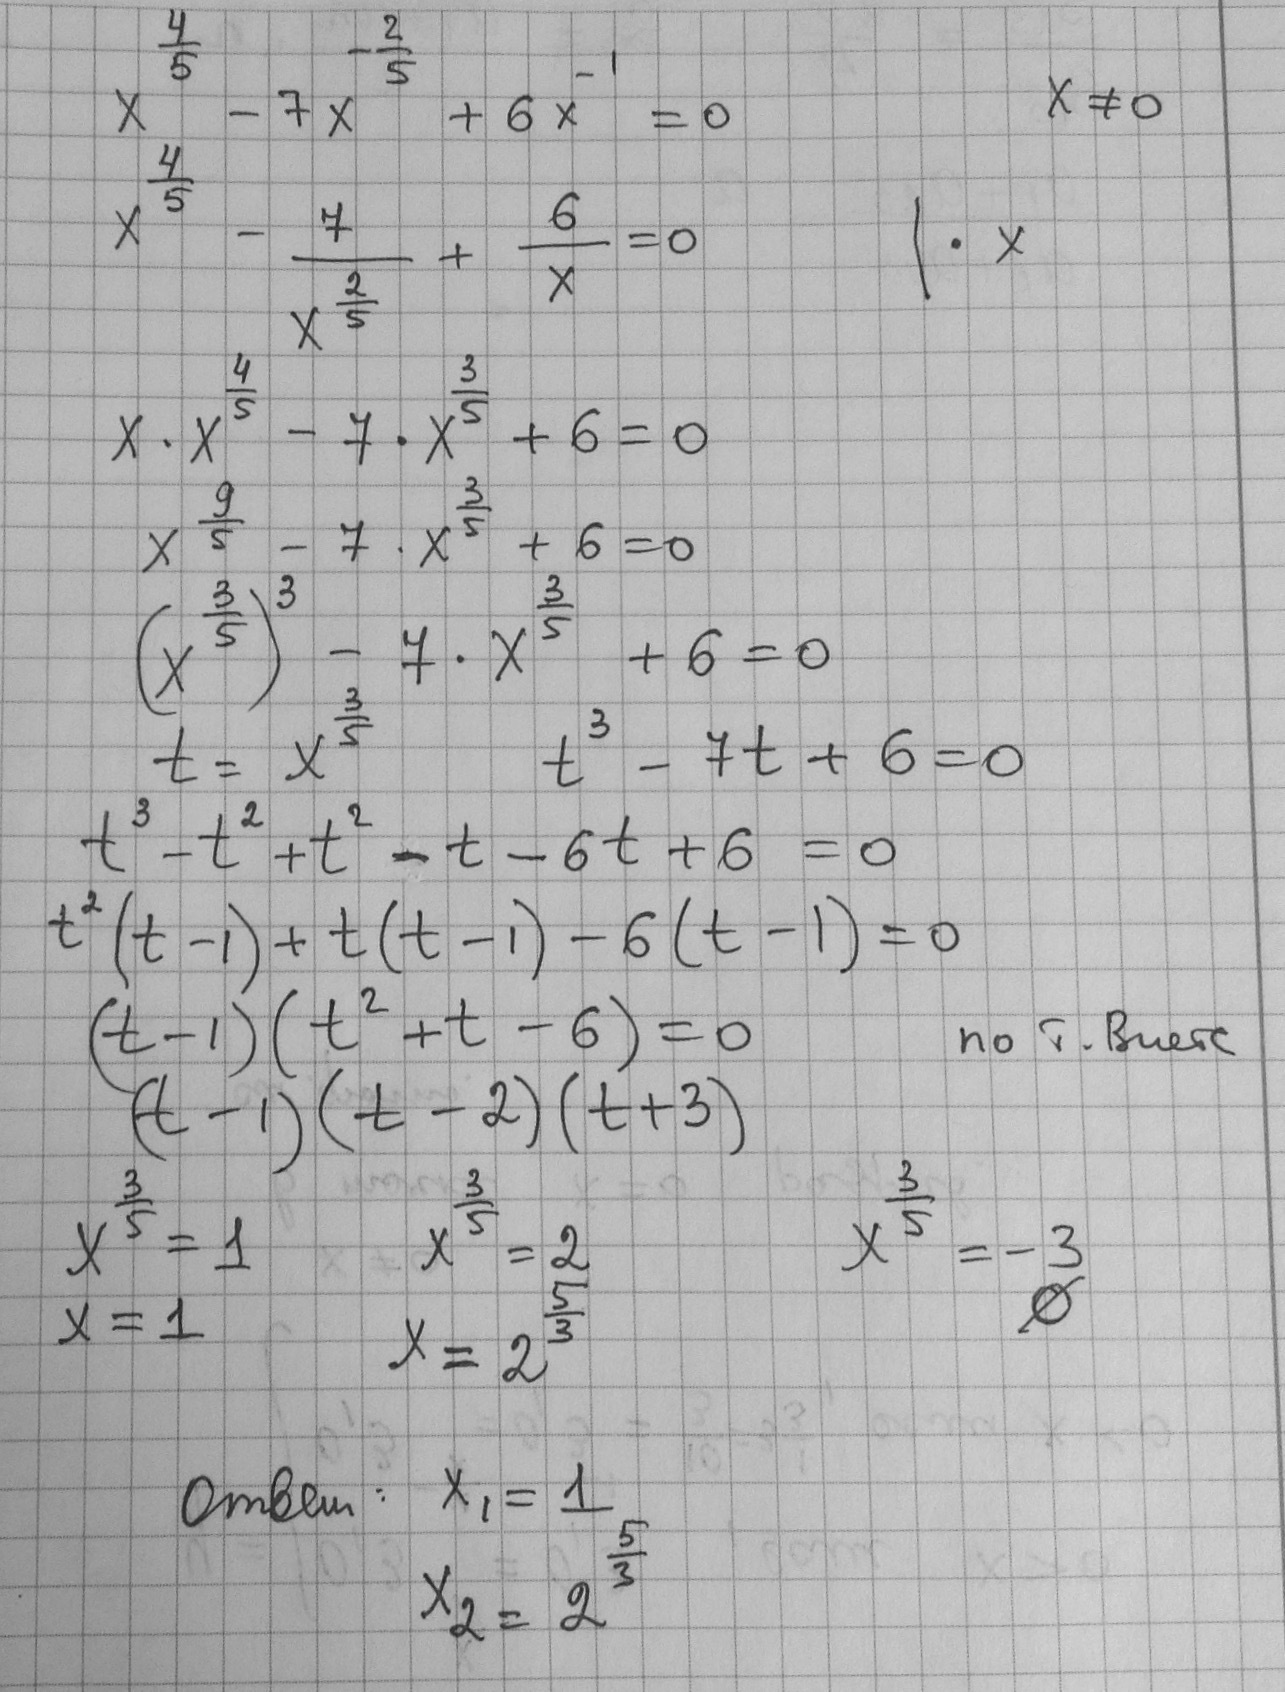 x^{4/5} - 7x^{-2/5} + 6x^{-1} = 0 x ≠ 0
x^{4/5} - 7/x^{2/5} + 6/x = 0 | · x
x · x^{4/5} - 7 · x^{3/5} + 6 = 0
x^{9/5} - 7 · x^{3/5} + 6 = 0
(x^{3/5})^3 - 7 · x^{3/5} + 6 = 0
t = x^{3/5} t^3 - 7t + 6 = 0
t^3 - t^2 + t^2 - t - 6t + 6 = 0
t^2(t - 1) + t(t - 1) - 6(t - 1) = 0
(t - 1)(t^2 + t - 6) = 0 по т. Виета
(t - 1)(t - 2)(t + 3)
x^{3/5} = 1 x^{3/5} = 2 x^{3/5} = -3
x = 1 x = 2^{5/3} ∅
Ответ: x_1 = 1
x_2 = 2^{5/3}